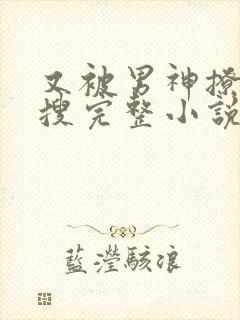 又被男神撩
搜完整小說
藍瀅駭浪